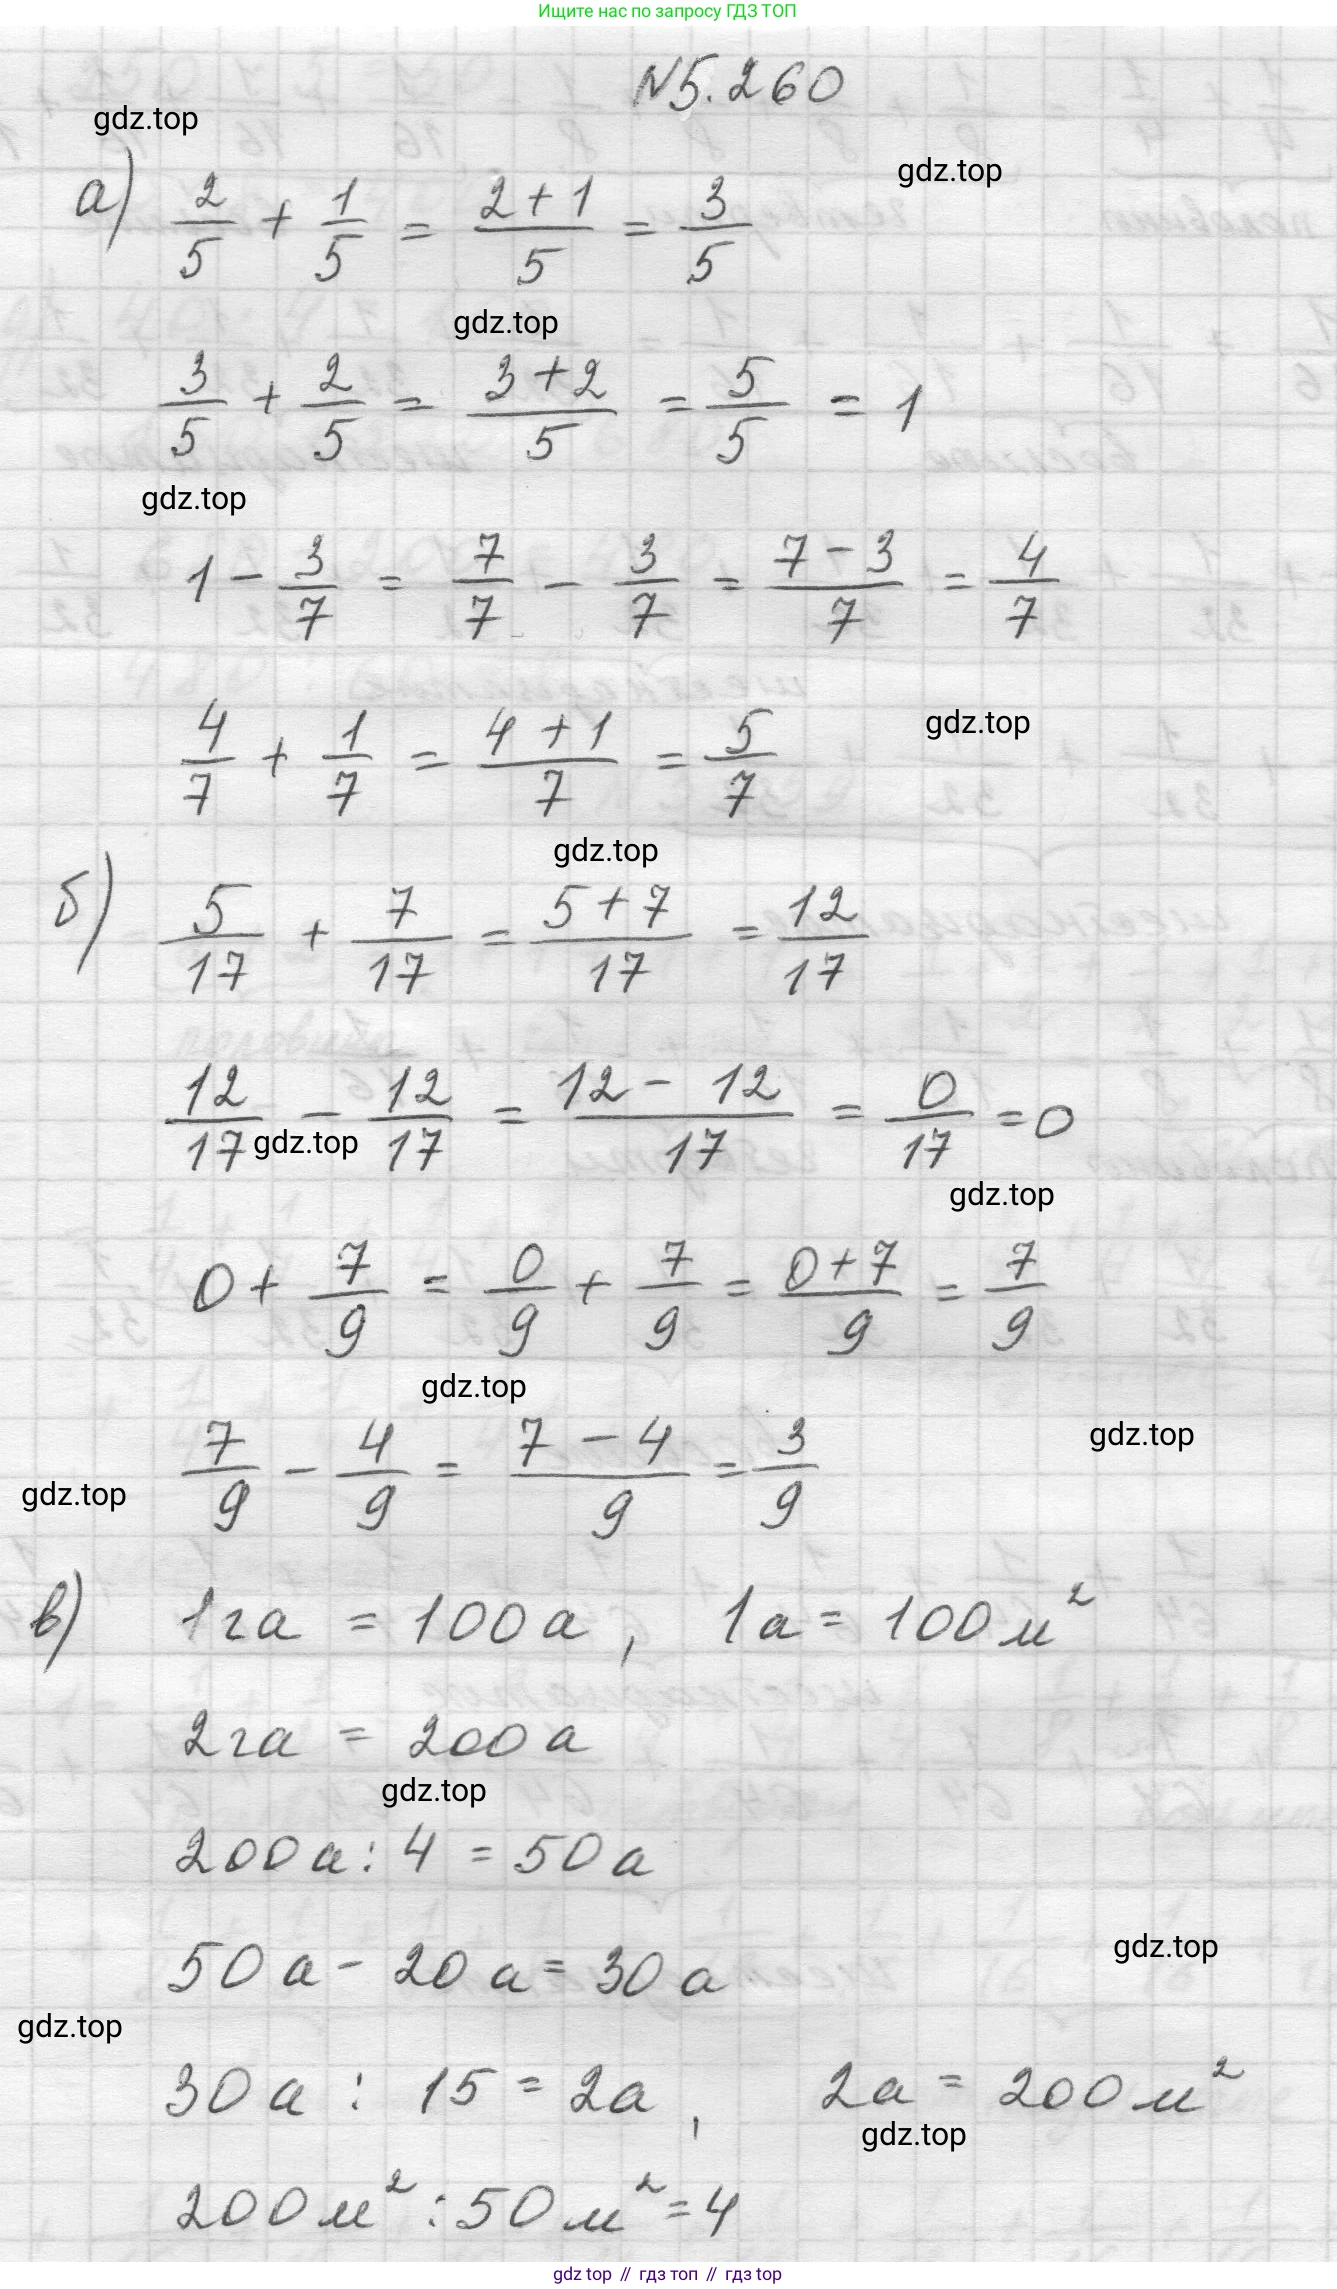 Ищите нас по запросу ГДЗ ТОП
N5.260
gdz.top
gdz.top
а) 2/5 + 1/5 = (2+1)/5 = 3/5
gdz.top
3/5 + 2/5 = (3+2)/5 = 5/5 = 1
gdz.top
1 - 3/7 = 7/7 - 3/7 = (7-3)/7 = 4/7
4/7 + 1/7 = (4+1)/7 = 5/7
gdz.top
gdz.top
б) 5/17 + 7/17 = (5+7)/17 = 12/17
12/17 - 12/17 = (12-12)/17 = 0/17 = 0
gdz.top
gdz.top
0 + 7/9 = 0/9 + 7/9 = (0+7)/9 = 7/9
gdz.top
gdz.top
7/9 - 4/9 = (7-4)/9 = 3/9
gdz.top
в) 1га = 100а, 1а = 100м²
2га = 200а
gdz.top
200а : 4 = 50а
gdz.top
50а - 20а = 30а
gdz.top
30а : 15 = 2а, 2а = 200м²
gdz.top
200м² : 50м² = 4
gdz top // гдз топ // гдз top